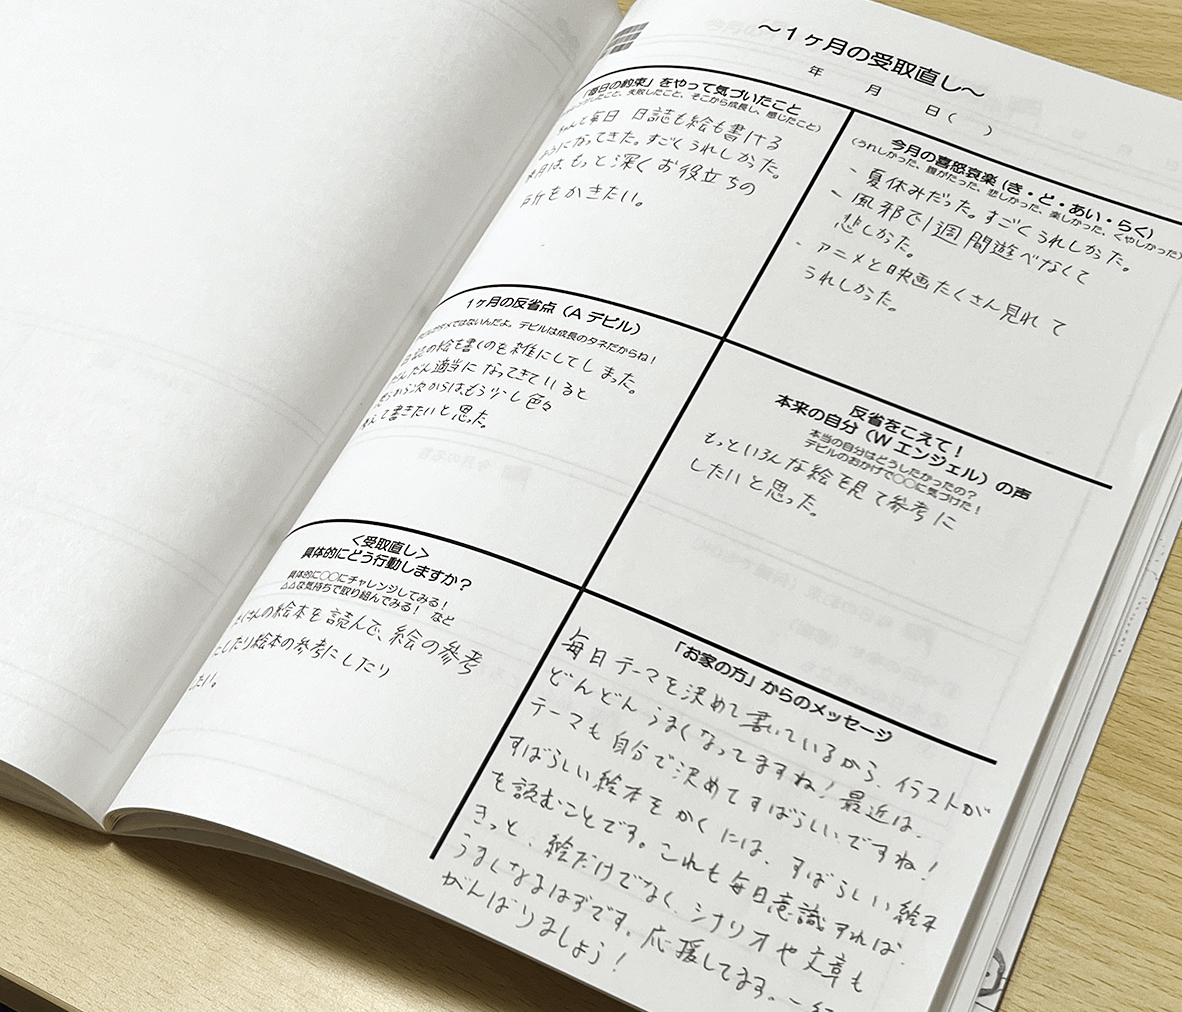 ～１ヶ月の受取直し～
年　月　日（　）
「毎日の約束」をやって気づいたこと
失敗したこと、そこから成長し、感じたこと）
毎日 日誌も絵も書ける
になってきた。すごくうれしかった。
月は、もっと深くお役立ちの
をかきたい。
今月の喜怒哀楽（き・ど・あい・らく）
（うれしかった、腹がたった、悲しかった、楽しかった、くやしかった）
- 夏休みだった。すごくうれしかった。
- 風邪で1週間遊べなくて
悲しかった。
- アニメと映画たくさん見れて
うれしかった。
１ヶ月の反省点（Ａ デビル）
ダメではないんだよ。デビルは成長のタネだからね！
誌の絵を書くのも雑にしてしまった。
だんだん適当になってきていると
次からはもう少し色々
て書きたいと思った。
反省をこえて！
本来の自分（Ｗ エンジェル）の声
本当の自分はどうしたかったの？
デビルのおかげで〇〇に気づけた！
もっといろんな絵を見て参考に
したいと思った。
＜受取直し＞
具体的にどう行動しますか？
具体的に〇〇にチャレンジしてみる！
△△な気持ちで取り組んでみる！ など
くさんの絵本を読んで、絵の参考
にしたり絵本の参考にしたり
たい。
「お家の方」からのメッセージ
毎日テーマを決めて書いているから、イラストが
どんどんうまくなってますね！最近は、
テーマも自分で決めてすばらしいですね！
すばらしい絵本をかくには、すばらしい絵本
を読むことです。これも毎日意識すれば、
きっと、絵だけでなく、シナリオや文章も
うまくなるはずです。応援してます。一緒
がんばりましょう！